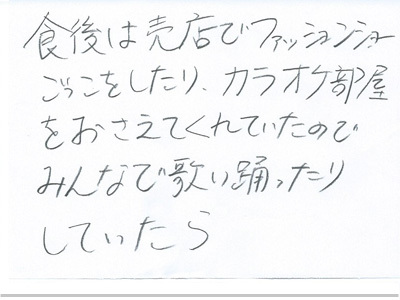 食後は売店でファッションショー
ごっこをしたり、カラオケ部屋
をおさえてくれていたので
みんなで歌い踊ったり
していたら